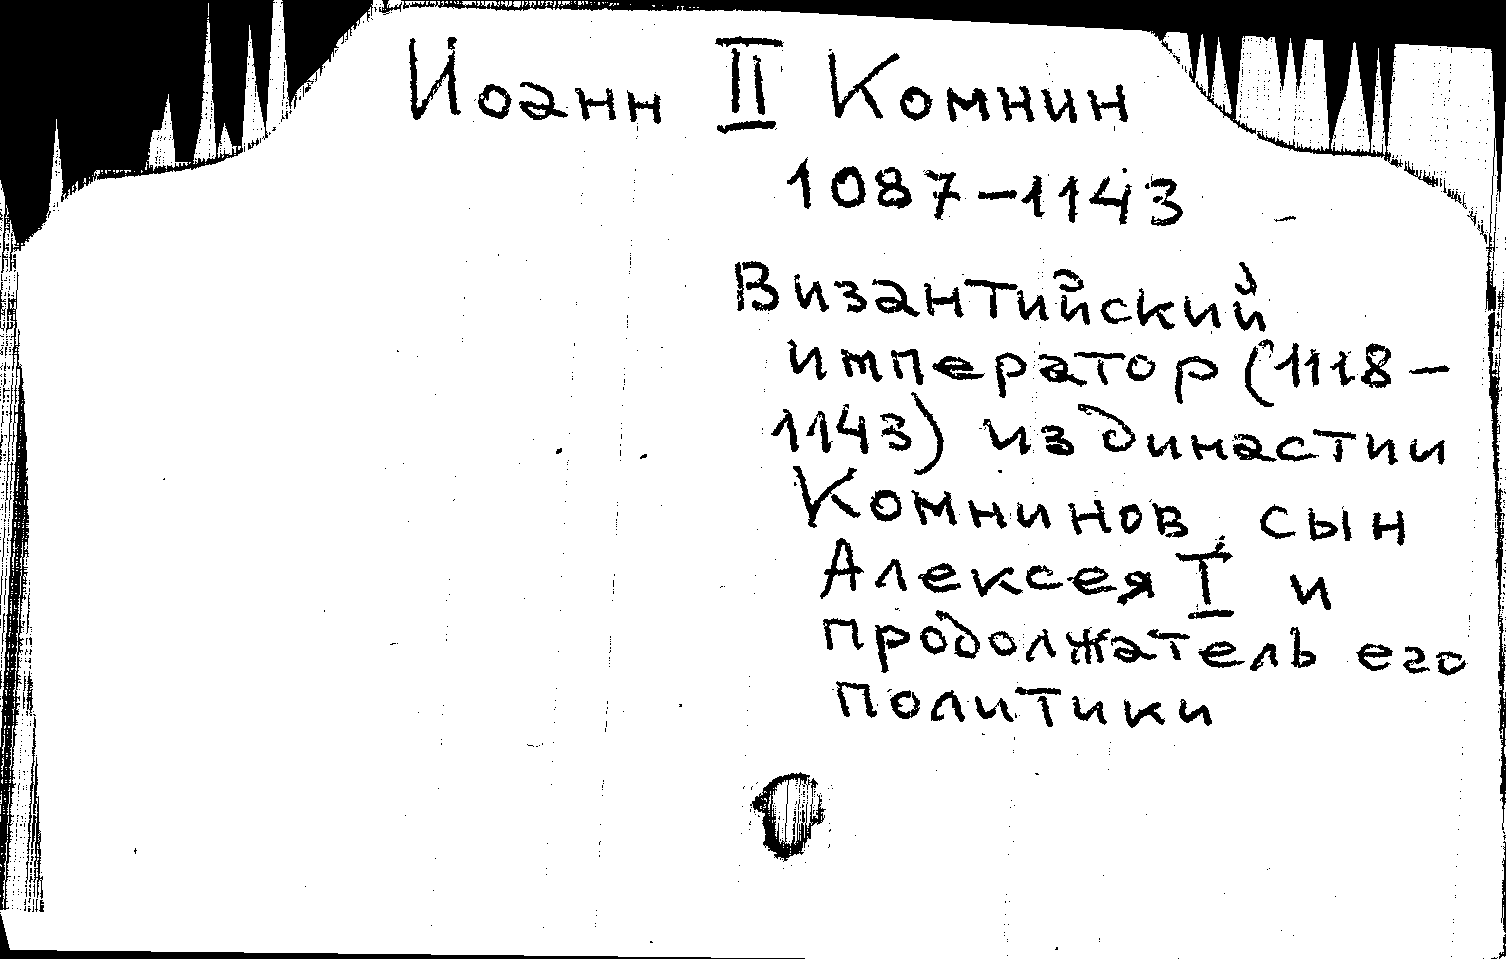 Иоанн II Комнин
1087-1143
Византийский
император (1118-
1143) из династии
Комнинов, сын
Алексея I и
продолжатель его
политики